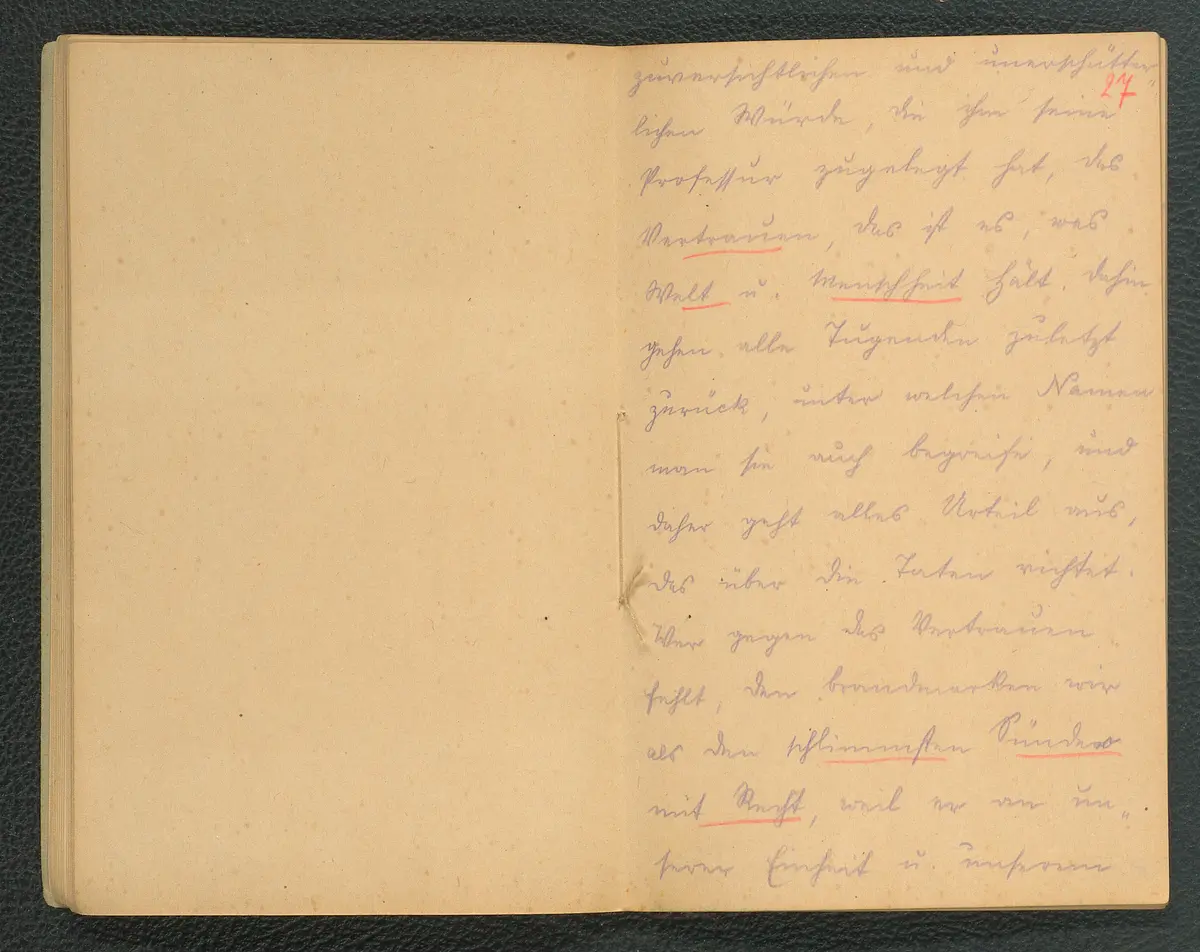 zuversichtlichen und unerschütter„
27
lichen Würde, die ihm seine
Professur zugelegt hat, das
Vertrauen, das ist es, was
Welt u. Menschheit hält. Dahin
gehen alle Tugenden zuletzt
zurück, unter welchen Namen
man sie auch begreife, und
daher geht alles Urteil aus,
das über die Taten richtet.
Wer gegen das Vertrauen
fehlt, den brandmarken wir
als den schlimmsten Sünder
mit Recht, weil er an un„
serer Einheit u. unserem